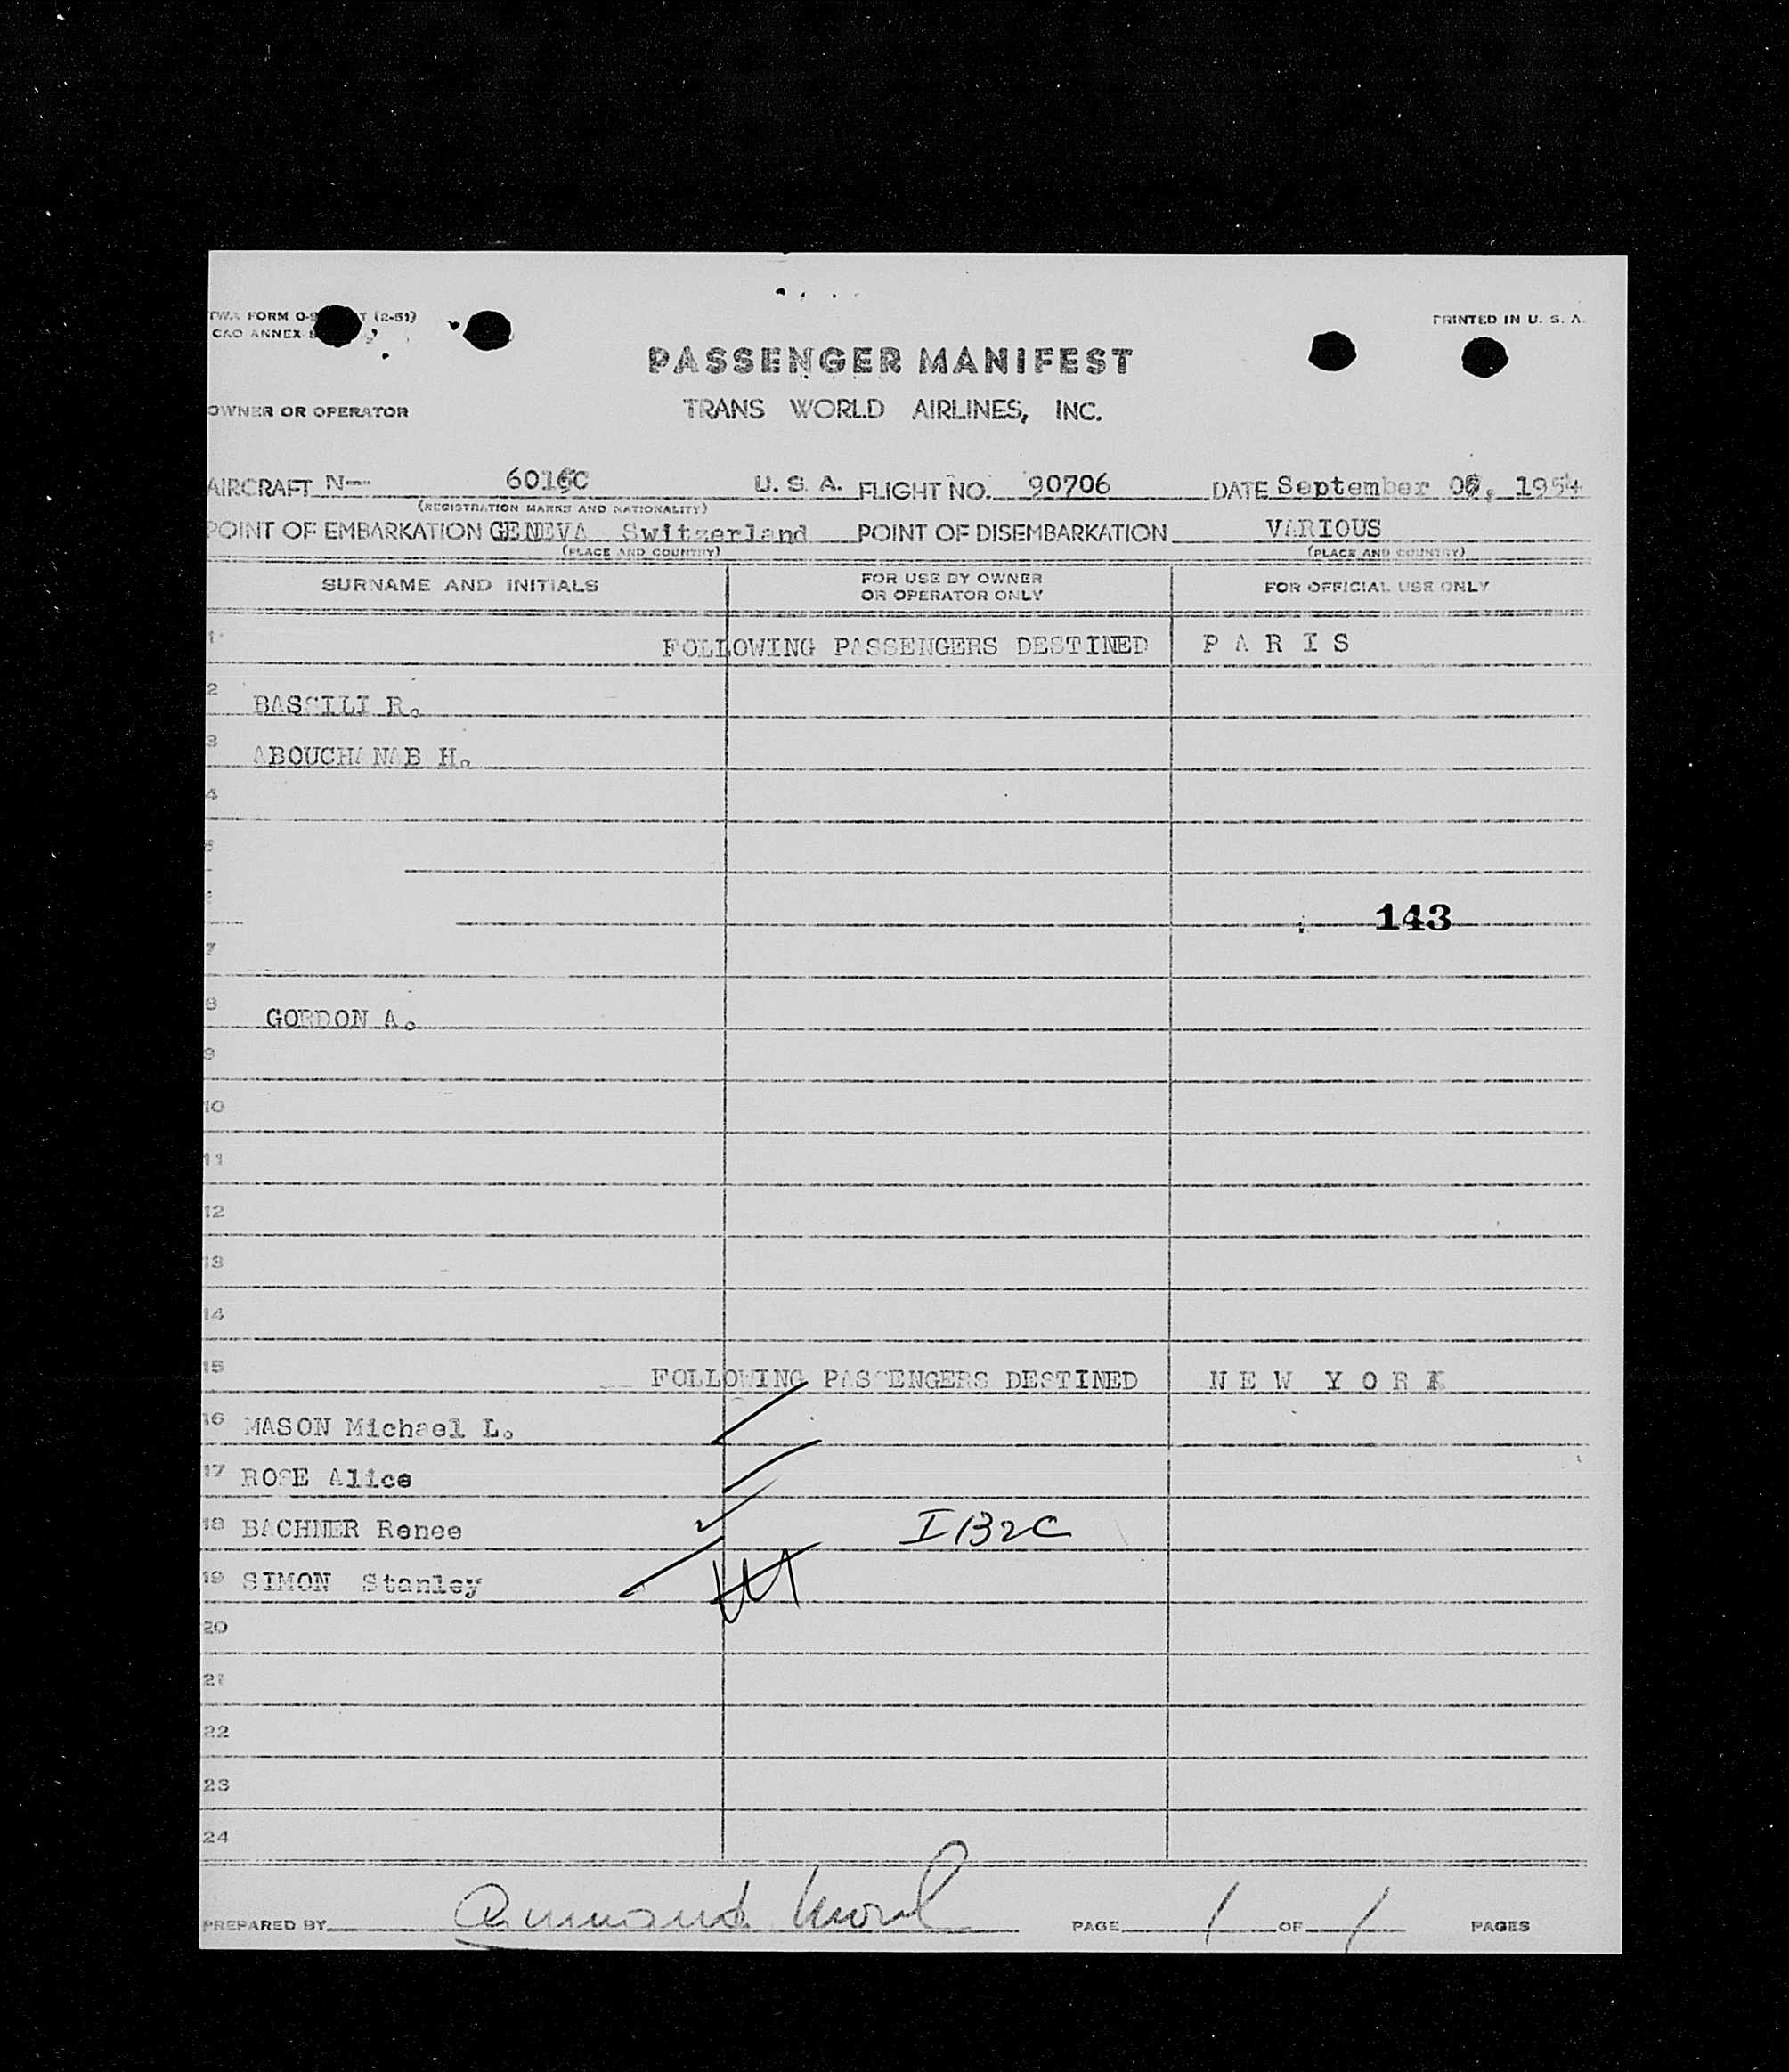 TWA FORM O-9 T (2-51)
CAO ANNEX
PRINTED IN U. S. A.
PASSENGER MANIFEST
OWNER OR OPERATOR
TRANS WORLD AIRLINES, INC.
AIRCRAFT N-- U. S. A. FLIGHT NO. 90706 DATE September 1954
(REGISTRATION MARKS AND NATIONALITY)
POINT OF EMBARKATION GENEVA Switzerland POINT OF DISEMBARKATION VARIOUS
(PLACE AND COUNTRY) (PLACE AND COUNTRY)
SURNAME AND INITIALS
FOR USE BY OWNER
OR OPERATOR ONLY
FOR OFFICIAL USE ONLY
1 FOLLOWING PASSENGERS DESTINED P A R I S
2 BASSILI R.
3 ABOUCHANAB H.
4
5
143
7
8 GORDON A.
9
10
11
12
13
14
15 FOLLOWING PASSENGERS DESTINED N E W Y O R K
16 MASON Michael L.
17 ROSE Alice
18 BACHNER Renee
19 SIMON Stanley
20
21
22
23
24
PREPARED BY PAGE 1 OF 1 PAGES